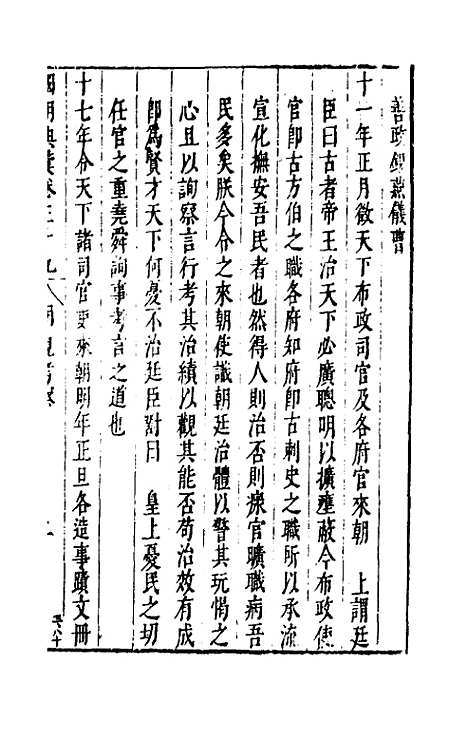 善政錫燕儀曹
十一年正月徵天下布政司官及各府官來朝　上謂廷
臣曰古者帝王治天下必廣聰明以擴壅蔽今布政使
官卽古方伯之職各府知府卽古刺史之職所以承流
宣化撫安吾民者也然得人則治否則瘝官曠職病吾
民多矣朕今令之來朝使識朝廷治體以警其玩愒之
心且以詢察言行考其治績以觀其能否苟治效有成
卽爲賢才天下何憂不治廷臣對曰　皇上憂民之切
任官之重堯舜詢事考言之道也
十七年令天下諸司官吏來朝明年正旦各造事蹟文冊
國朝典彙卷三十九　朝覲考察　一